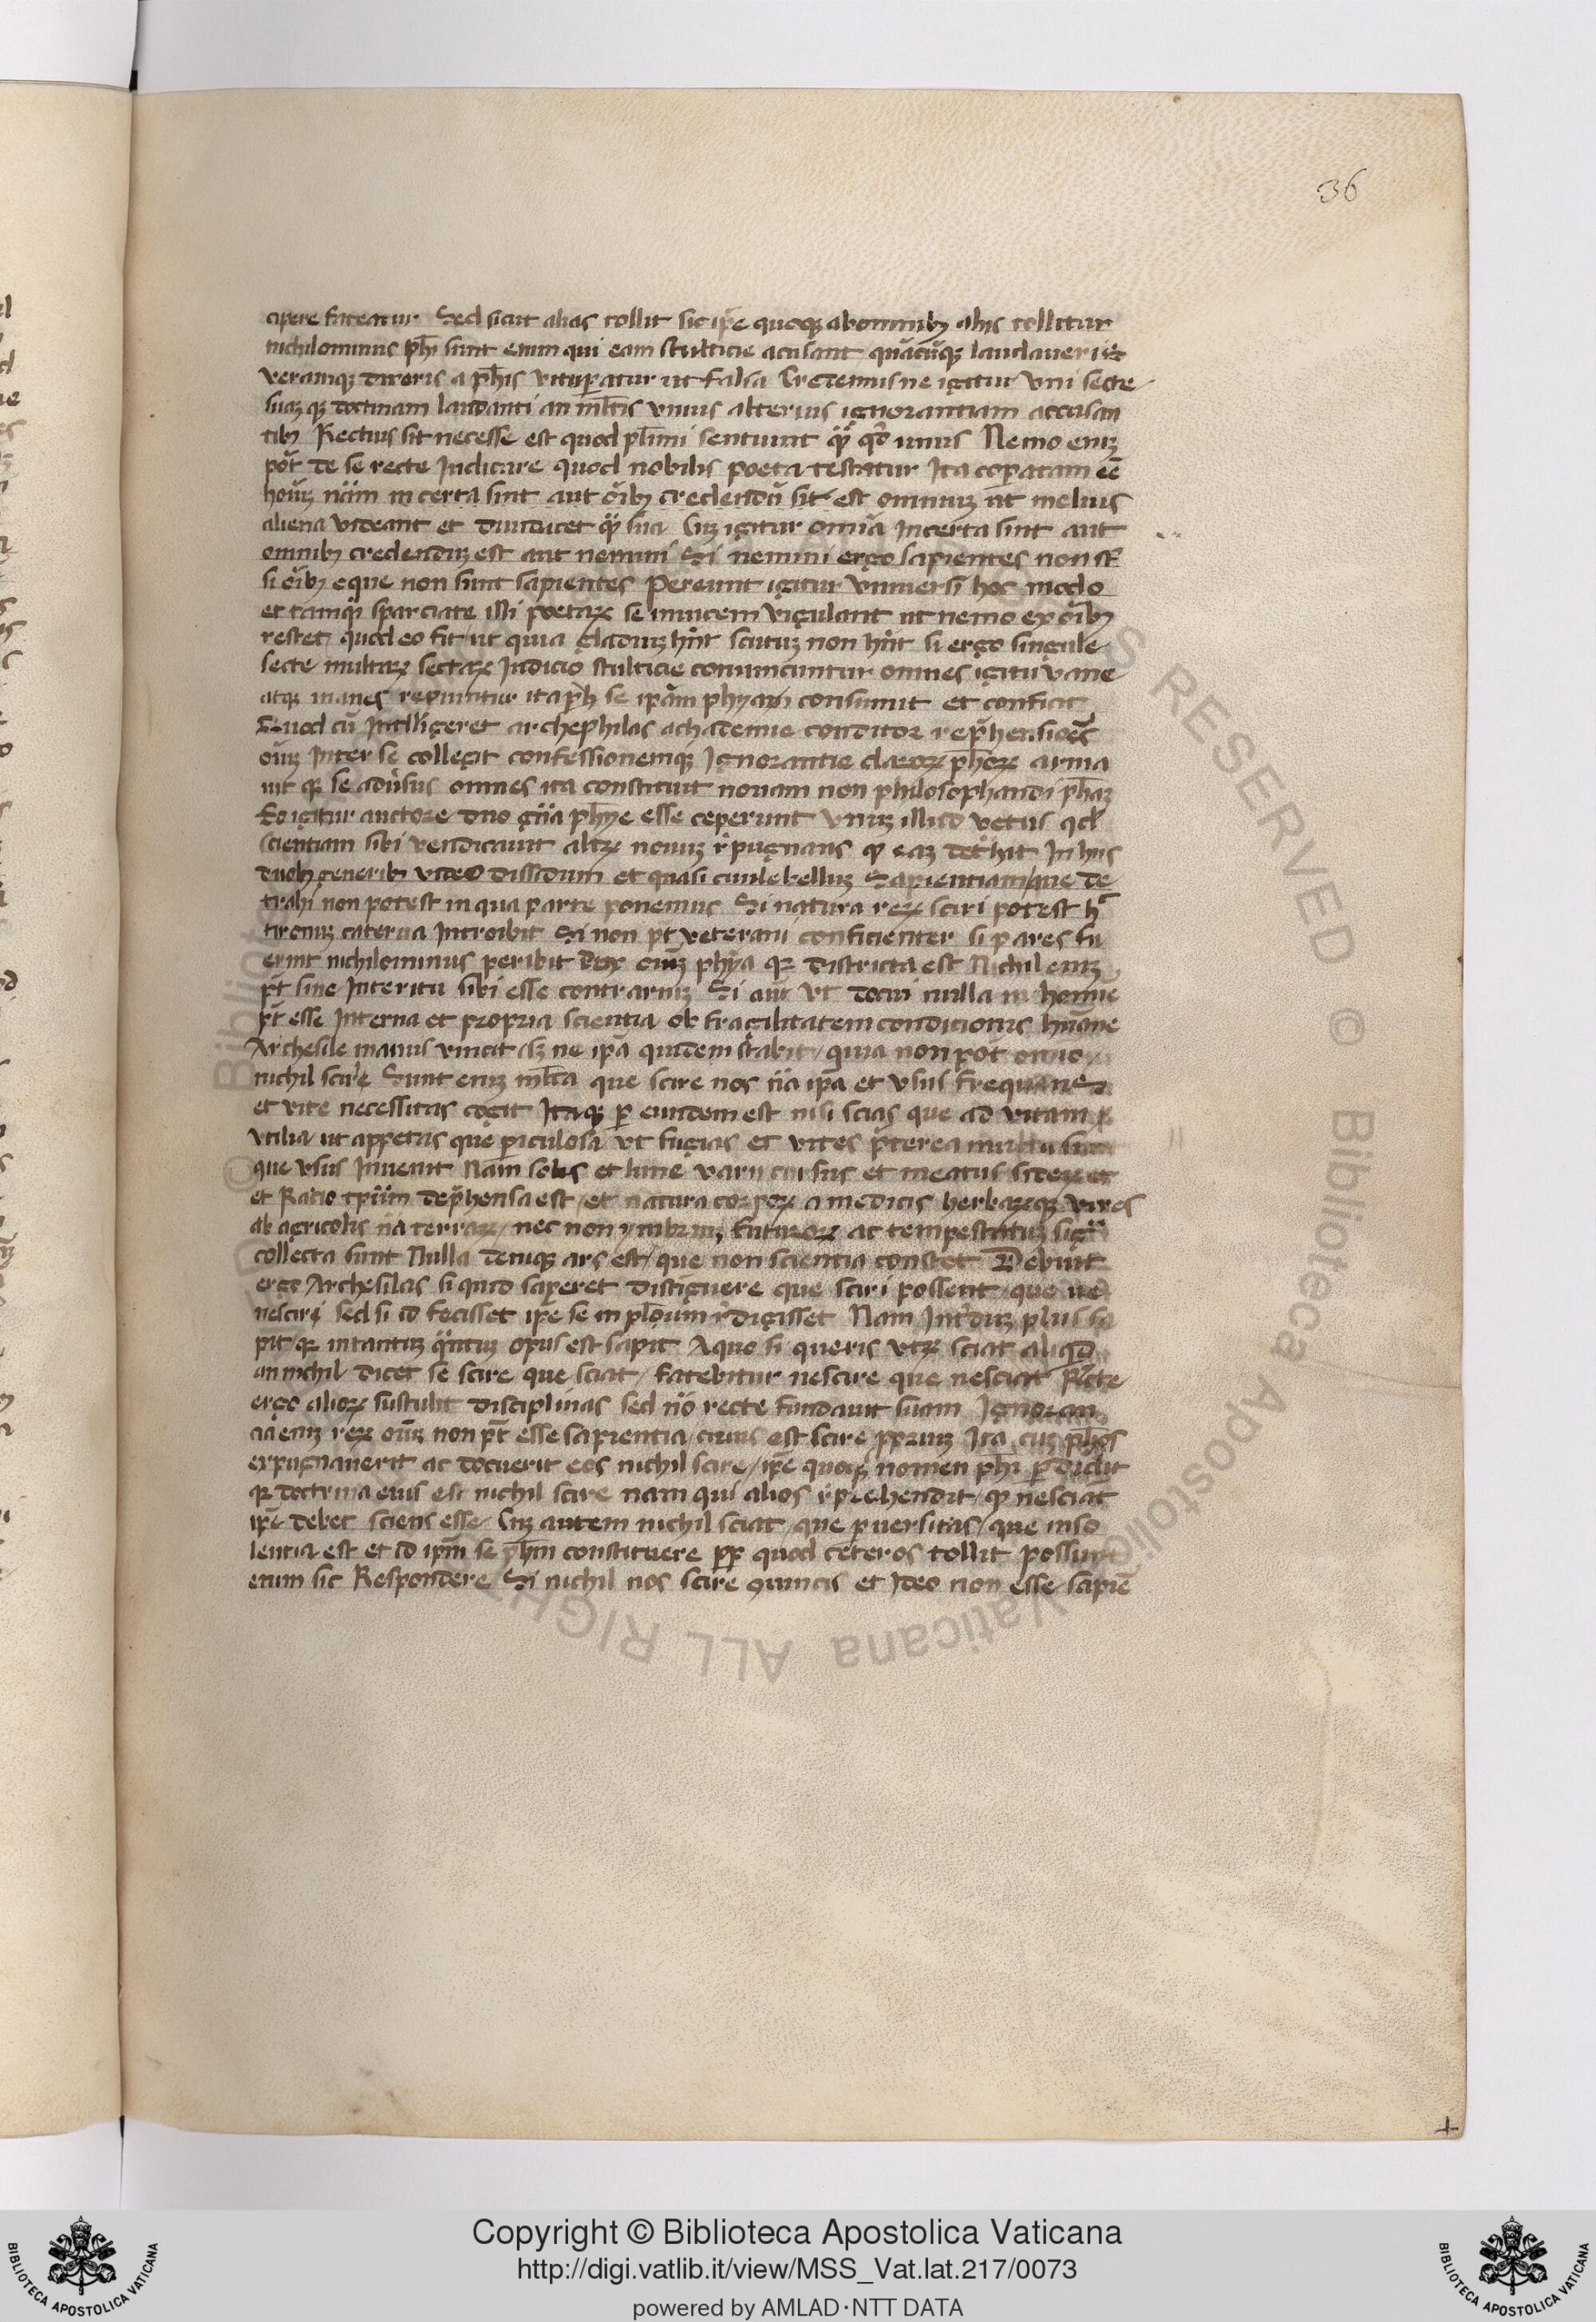 36
cipere fateatur Sed sicut alias tollit sic ip̄e quoqȝ ab omnibȝ aliis tollitur
nichilominus ph̄i sunt enim qui eam stulticie acusant quācūqȝ laudaverit
veramqȝ dixeris a ph̄is vituꝑatur ut falsa Credemusne igitur vni secte
suaȝ qȝ doctrinam laudanti an ml̄tis vnius alterius ignorantiam accusan
tibȝ Rectius sit necesse est quod pl̄imi sentiunt qȝ qd̄ unus Nemo eniȝ
pōt de se recte Indicare quod nobilis poeta testatur Ita coꝑatam eē
hoīuȝ nām incerta sint aut oībȝ credendū sit est omniuȝ ut melius
aliena videant et diiudicet qȝ sua Cuȝ igitur omīa Incerta sint aut
omnibȝ credenduȝ est aut nemini Si nemini ergo sapientes non st̄
si oībȝ eque non sunt sapientes Pereunt igitur vniuersi hoc modo
et tamqȝ sparciate illi poetaꝝ se inuicem vigulant ut nemo ex oībȝ
restet quod eo fit ut quia gladiuȝ hn̄t scutuȝ non hn̄t si ergo singule
secte multaꝝ sectaꝝ Iudicio stulticie conuincuntur omnes igitur vane
atqȝ inanes repiuntur ita ph̄ se ipām phyam consumit et conficit
Quod cū Intelligeret archephilas achademie conditor rep̄hensiōes
oīuȝ Inter se collegit confessionemqȝ Ignorantie claroꝝ ph̄oꝝ arma
uit qȝ se adūsus omnes ita constituit nouam non philosophandi ph̄aȝ
Eo igitur auctore duo gn̄a ph̄ye esse ceperunt vnuȝ illud vetus qd̄
scientiam sibi vendicauit alteꝝ nouuȝ r̄pugnans qȝ eaȝ det̄hit In hiis
duobȝ generibȝ video dissidium et quasi ciuile belluȝ Sapientiam que de
trahi non potest in qua parte ponemus Si natura reꝝ sciri potest h̄
tironuȝ caterua Introibit Si non pt̄ veterani conficienter si pares fu
erint nichilominus peribit dux eniȝ phȳa qȝ districta est Nichil eniȝ
pt̄ sine Interitu sibi esse contrariuȝ Si aūt vt docui nulla in homīe
pt̄ esse Interna et propria scientia ob fragilitatem condicionis hūane
Archesile manus vincit sȝ ne ipā quidem stabit quia non pōt omīo
nichil scire Sunt eniȝ ml̄ta que scire nos n̄a ipā et vsus frequens
et vite necessitas cogit Itaqȝ ꝑ eundem est nisi scias que ad vitam
vtilia ut appetas que ꝑiculosa vt fugias et vites p̄terea multa sunt
que vsus Inuenit Nam solis et lune varii cursus et meatus sideꝝ et
et Ratio tp̄um dep̄hensa est et natura corpoꝝ a medicis herbaꝝqȝ vires
ab agricolis n̄a terraꝝ nec non ymbriuȝ futuroꝝ ac tempestatuȝ sigā
collecta sunt Nulla deniqȝ ars est que non scientia constet Debuit
ergo Archesilas si quid saperet distīguere que sciri possent que ue
nesciri sed si id fecisset ip̄e se in pl̄oum r̄digisset Nam Int̄duȝ plus sa
pit qȝ intantuȝ qntuȝ opus est sapit A quo si queris vtꝝ sciat aliqd̄
an nichil dicet se scire que sciat fatebitur nescire que nesciat Rc̄te
ergo alioꝝ sustulit disciplinas sed nō recte fundauit suam Ignoran
cia eniȝ reꝝ oīuȝ non pt̄ esse sapientia cuius est scire ꝓpriuȝ Ita cuȝ ph̄os
expugnauerit ac docuerit eos nichil scire ip̄e quoqȝ nomen ph̄i ꝑdidit
qȝ doctrina eius est nichil scire nam qui alios r̄prehendit qȝ nesciat
ip̄e debet sciens esse Cuȝ autem nichil sciat que ꝑuersitas que inso
lentia est et id ipm̄ se ph̄m constituere ꝓp̄ quod ceteros tollit possunt
enim sic Respondere Si nichil nos scire ꝯuincis et Ideo non esse sapiē
Copyright © Biblioteca Apostolica Vaticana
http://digi.vatlib.it/view/MSS_Vat.lat.217/0073
powered by AMLAD·NTT DATA
BIBLIOTECA APOSTOLICA VATICANA
BIBLIOTECA APOSTOLICA VATICANA